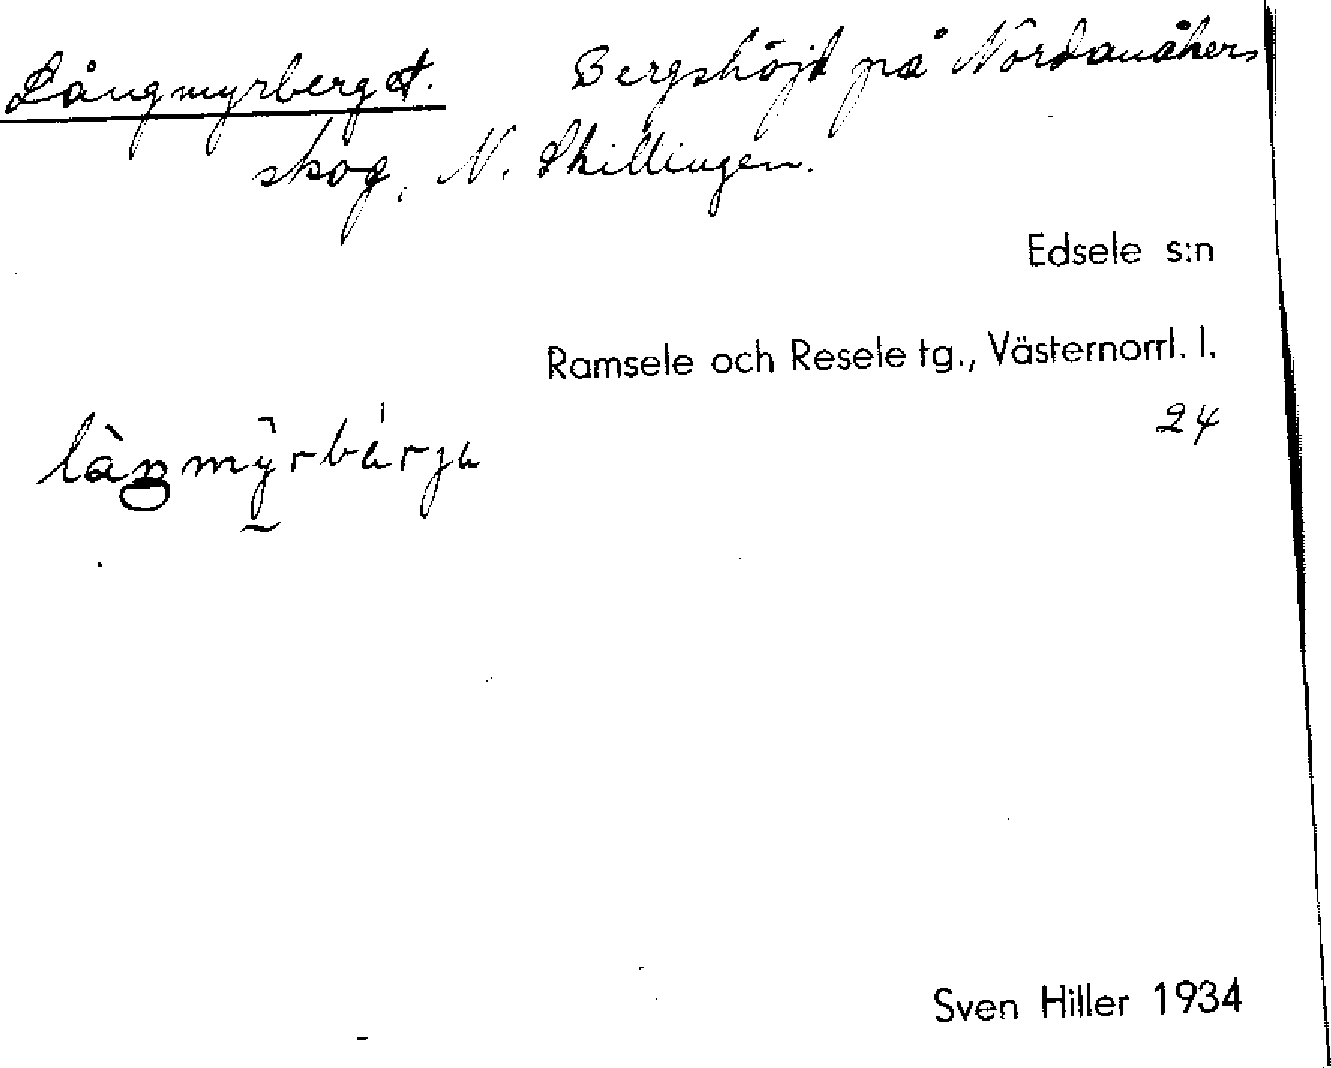 Långmyrberget. Bergshöjd på Nordanåkers
skog, N. Skillingen.
Edsele s:n
Ramsele och Resele tg., Västernorrl. l.
24
Sven Hiller 1934